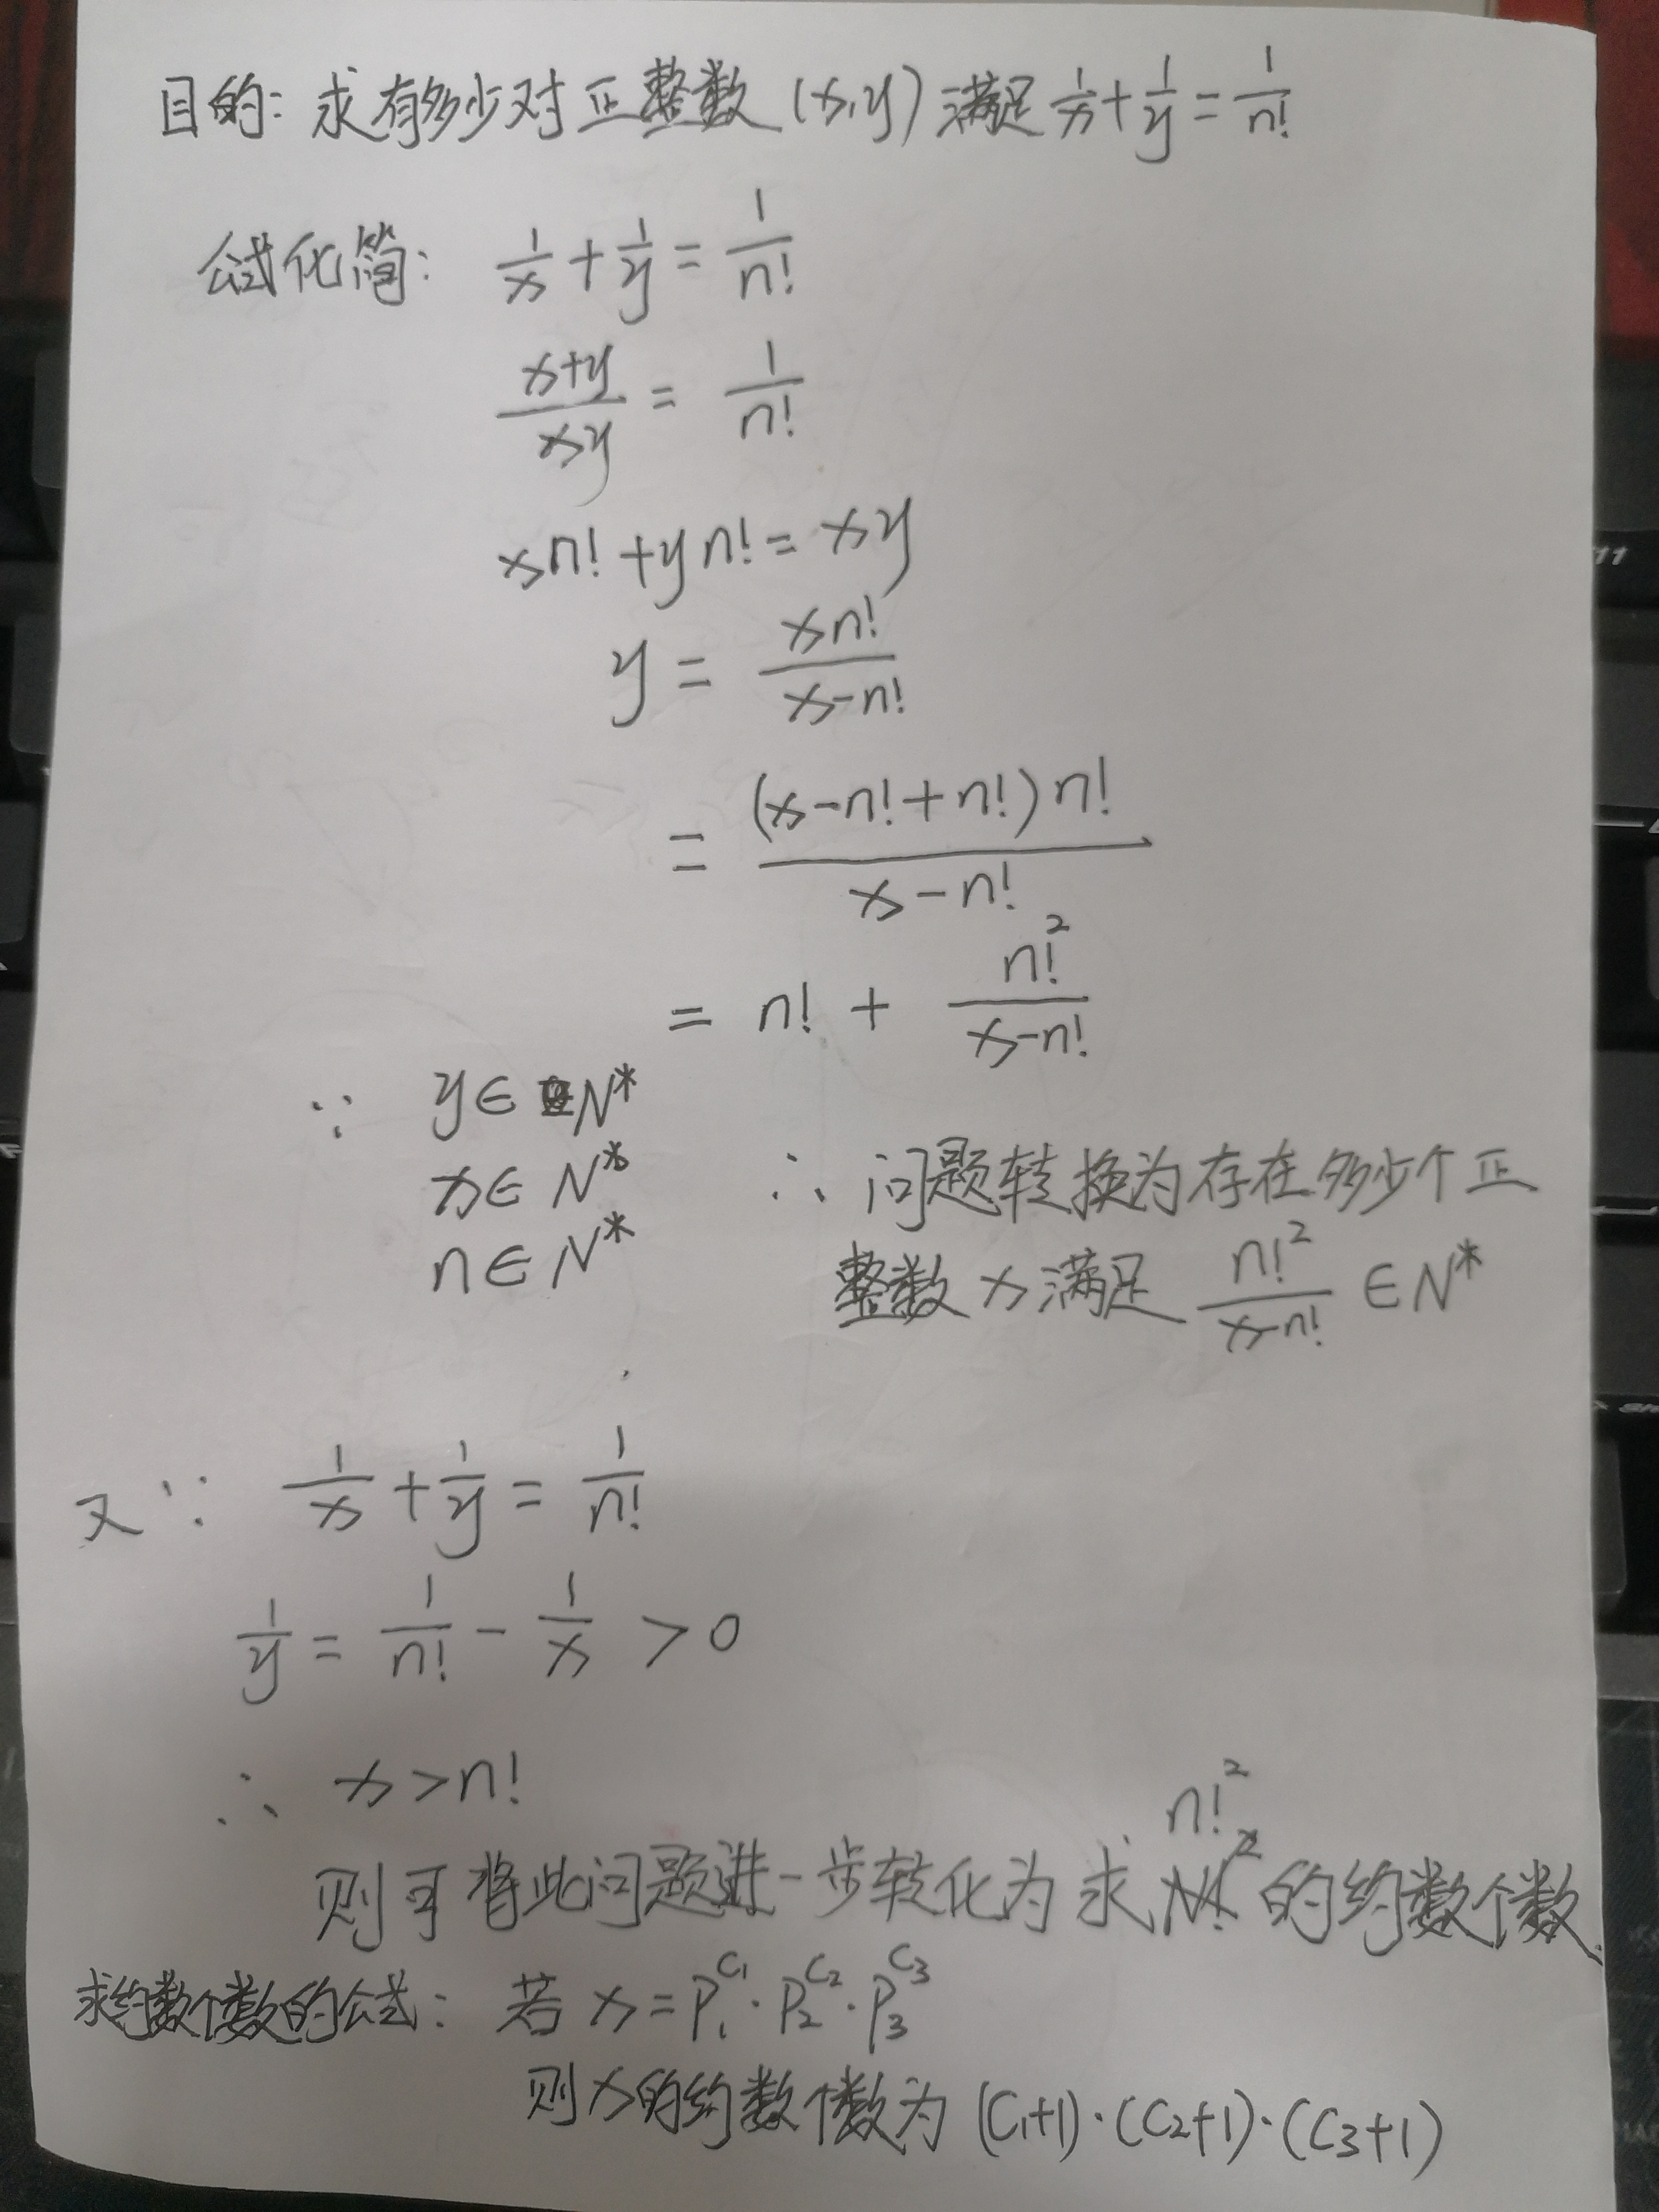 目的: 求有多少对正整数 (x,y) 满足 1/x + 1/y = 1/n!
公式化简: 1/x + 1/y = 1/n!
(x+y)/(xy) = 1/n!
xn! + yn! = xy
y = xn!/(x-n!)
= (x-n!+n!)n!/(x-n!)
= n! + n!²/(x-n!)
∵ y∈N*
x∈N* ∴ 问题转换为存在多少个正
n∈N* 整数 x 满足 n!²/(x-n!) ∈N*
又∵ 1/x + 1/y = 1/n!
1/y = 1/n! - 1/x > 0
∴ x>n!
则可将此问题进一步转化为求 n!² 的约数个数.
求约数个数的公式: 若 x = P₁^C₁ · P₂^C₂ · P₃^C₃
则 x 的约数个数为 (C₁+1)·(C₂+1)·(C₃+1)